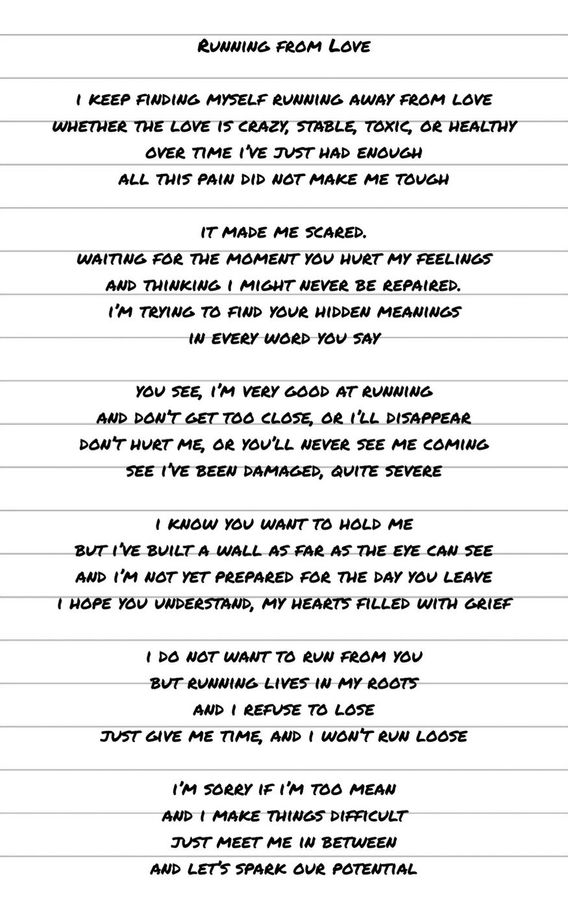 Running from Love
I keep finding myself running away from love
Whether the love is crazy, stable, toxic, or healthy
Over time I've just had enough
All this pain did not make me tough
It made me scared.
Waiting for the moment you hurt my feelings
And thinking I might never be repaired.
I'm trying to find your hidden meanings
In every word you say
You see, I'm very good at running
And don't get too close, or I'll disappear
Don't hurt me, or you'll never see me coming
See I've been damaged, quite severe
I know you want to hold me
But I've built a wall as far as the eye can see
And I'm not yet prepared for the day you leave
I hope you understand, my hearts filled with grief
I do not want to run from you
But running lives in my roots
And I refuse to lose
Just give me time, and I won't run loose
I'm sorry if I'm too mean
And I make things difficult
Just meet me in between
And let's spark our potential